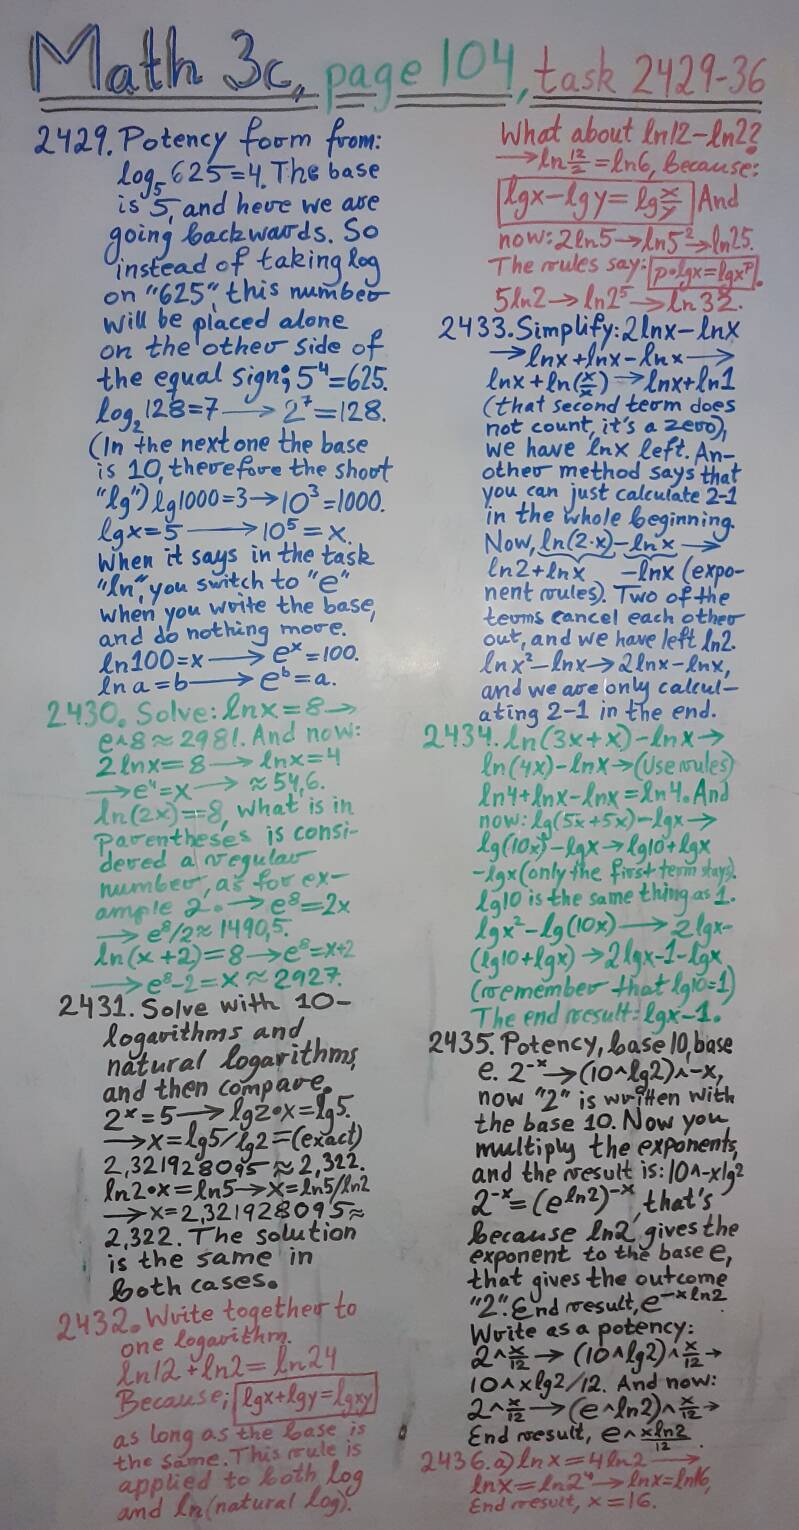 Math 3c, page 104, task 2429-36
2429. Potency form from:
log₅625=4. The base
is 5, and here we are
going backwards. So
instead of taking log
on "625", this number
will be placed alone
on the other side of
the equal sign; 5⁴=625.
log₂128=7 → 2⁷=128.
(In the next one the base
is 10, therefore the short
"lg") lg1000=3→10³=1000.
lgx=5 → 10⁵=x.
When it says in the task
"ln", you switch to "e"
when you write the base,
and do nothing more.
ln100=x → eˣ=100.
ln a=b → eᵇ=a.
2430. Solve: lnx=8→
e^8≈2981. And now:
2lnx=8→lnx=4
→e⁴=x→ ≈54,6.
ln(2x)=8, what is in
parentheses is consi-
dered a regular
number, as for ex-
ample 2. →e⁸=2x
→ e⁸/2≈1490,5.
ln(x+2)=8→e⁸=x+2
→e⁸-2=x≈2979.
2431. Solve with 10-
logarithms and
natural logarithms,
and then compare.
2ˣ=5→lg2•x=lg5.
→x=lg5/lg2=(exact)
2,321928095≈2,322.
ln2•x=ln5→x=ln5/ln2
→x=2,321928095≈
2,322. The solution
is the same in
both cases.
2432. Write together to
one logarithm.
ln12+ln2=ln24
Because; lgx+lgy=lgxy
as long as the base is
the same. This rule is
applied to both log
and ln(natural log).
What about ln12-ln2?
→ln12/2=ln6, Because:
lgx-lgy=lg x/y And
now: 2ln5→ln5²→ln25.
The rules say: p•lgx=lgxᵖ.
5ln2→ln2⁵→ln32.
2433. Simplify: 2lnx-lnx
→lnx+lnx-lnx→
lnx+ln(x/x)→lnx+ln1
(that second term does
not count, it's a zero),
we have lnx left. An-
other method says that
you can just calculate 2-1
in the whole beginning.
Now, ln(2·x)-lnx→
ln2+lnx -lnx (expo-
nent rules). Two of the
terms cancel each other
out, and we have left ln2.
lnx²-lnx→2lnx-lnx,
and we are only calcul-
ating 2-1 in the end.
2434. ln(3x+x)-lnx→
ln(4x)-lnx→(Use rules)
ln4+lnx-lnx=ln4. And
now: lg(5x+5x)-lgx→
lg(10x)-lgx→lg10+lgx
-lgx (only the first term stays).
lg10 is the same thing as 1.
lgx²-lg(10x)→2lgx-
(lg10+lgx)→2lgx-1-lgx
(remember that lg10=1)
The end result: lgx-1.
2435. Potency, base 10, base
e. 2⁻ˣ→(10^lg2)^-x,
now "2" is written with
the base 10. Now you
multiply the exponents,
and the result is: 10^-xlg2
2⁻ˣ=(e^ln2)⁻ˣ, that's
because ln2 gives the
exponent to the base e,
that gives the outcome
"2". End result, e^-xln2
Write as a potency:
2^x/12→(10^lg2)^x/12→
10^xlg2/12. And now:
2^x/12→(e^ln2)^x/12→
End result, e^xln2/12.
2436. a) lnx=4ln2→
lnx=ln2⁴→lnx=ln16,
End result, x=16.